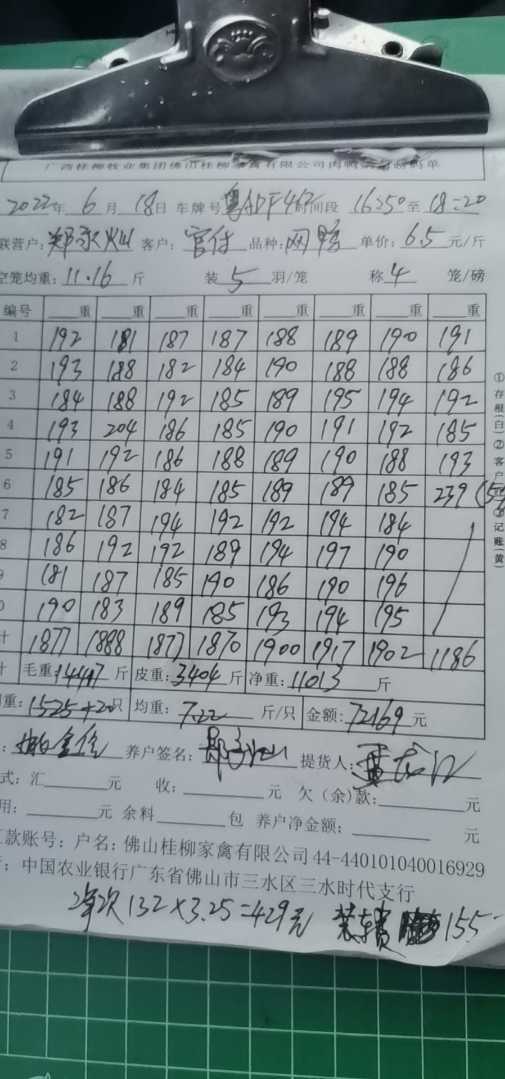 广西桂柳牧业集团佛山桂柳家禽有限公司肉鸭
2022年 6 月 18日 车牌号 粤ADF462 时间段 16:50 至 18:20
联营户: 郑永灿 客户: 官付 品种: 网鸭 单价: 6.5 元/斤
空笼均重: 11.16 斤 装 5 羽/笼 称 4 笼/磅
编号 重 重 重 重 重 重 重 重
1 192 181 187 187 188 189 190 191
2 193 188 182 184 190 188 188 186
3 184 188 192 185 189 195 194 192
4 193 204 186 185 190 191 192 185
5 191 192 186 188 189 190 188 193
6 185 186 184 185 189 189 185 239 (5
7 182 187 194 192 192 194 184
8 186 192 192 189 194 197 190
9 181 187 185 190 186 190 196
0 190 183 189 185 193 194 195
计 1877 1888 1877 1870 1900 1917 1902 1186
计 毛重: 14417 斤 皮重: 3404 斤 净重: 11013 斤
重: 1525+20只 均重: 7.22 斤/只 金额: 72169 元
: 养户签名: 提货人:
式: 汇 元 收: 元 欠(余)款: 元
用: 元 余料 包 养户净金额: 元
款账号: 户名: 佛山桂柳家禽有限公司 44-440101040016929
: 中国农业银行广东省佛山市三水区三水时代支行
132×3.25=429元 装车费 155
①存根(白)②客户 ③记账(黄)